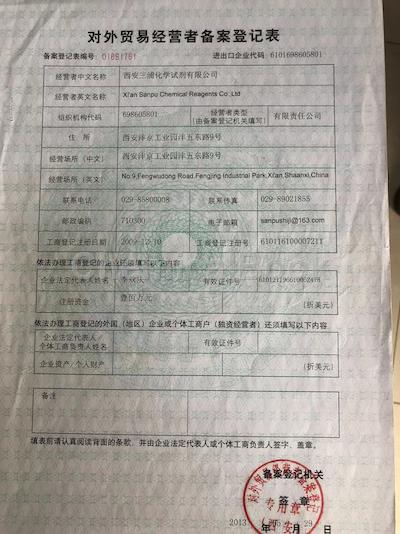 对外贸易经营者备案登记表
备案登记表编号：01691761 进出口企业代码：6101698605801
经营者中文名称 西安三浦化学试剂有限公司
经营者英文名称 Xi'an Sanpu Chemical Reagents Co.,Ltd
组织机构代码 698605801 经营者类型（由备案登记机关填写） 有限责任公司
住 所 西安沣京工业园沣五东路9号
经营场所（中文） 西安沣京工业园沣五东路9号
经营场所（英文） No.9,Fengwudong Road,Fengjing Industrial Park,Xi'an,Shaanxi,China
联系电话 029-85800008 联系传真 029-89021855
邮政编码 710300 电子邮箱 sanpushiji@163.com
工商登记注册日期 2009-12-10 工商登记注册号 610116100007211
依法办理工商登记的企业还须填写以下内容
企业法定代表人姓名 有效证件号
注册资金 壹佰万元 （折美元）
依法办理工商登记的外国（地区）企业或个体工商户（独资经营者）还须填写以下内容
企业法定代表人/
个体工商负责人姓名 有效证件号
企业资产/个人财产 （折美元）
备注
填表前请认真阅读背面的条款，并由企业法定代表人或个体工商负责人签字、盖章。
备案登记机关
签 章
专用章
2013 年 月 29 日